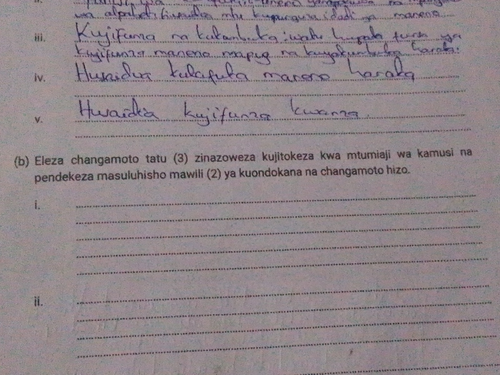 wa alpabeti huwafanya mtu kupunguza idadi ya maneno
iii. Kujifunza na kukumbuka: watu hupata fursa ya
kujifunza maneno mapya na kuyakumbuka haraka.
iv. Husaidia kutafuta maneno haraka
v. Hwaidia kujifunza kwanza.
(b) Eleza changamoto tatu (3) zinazoweza kujitokeza kwa mtumiaji wa kamusi na
pendekeza masuluhisho mawili (2) ya kuondokana na changamoto hizo.
i.
ii.